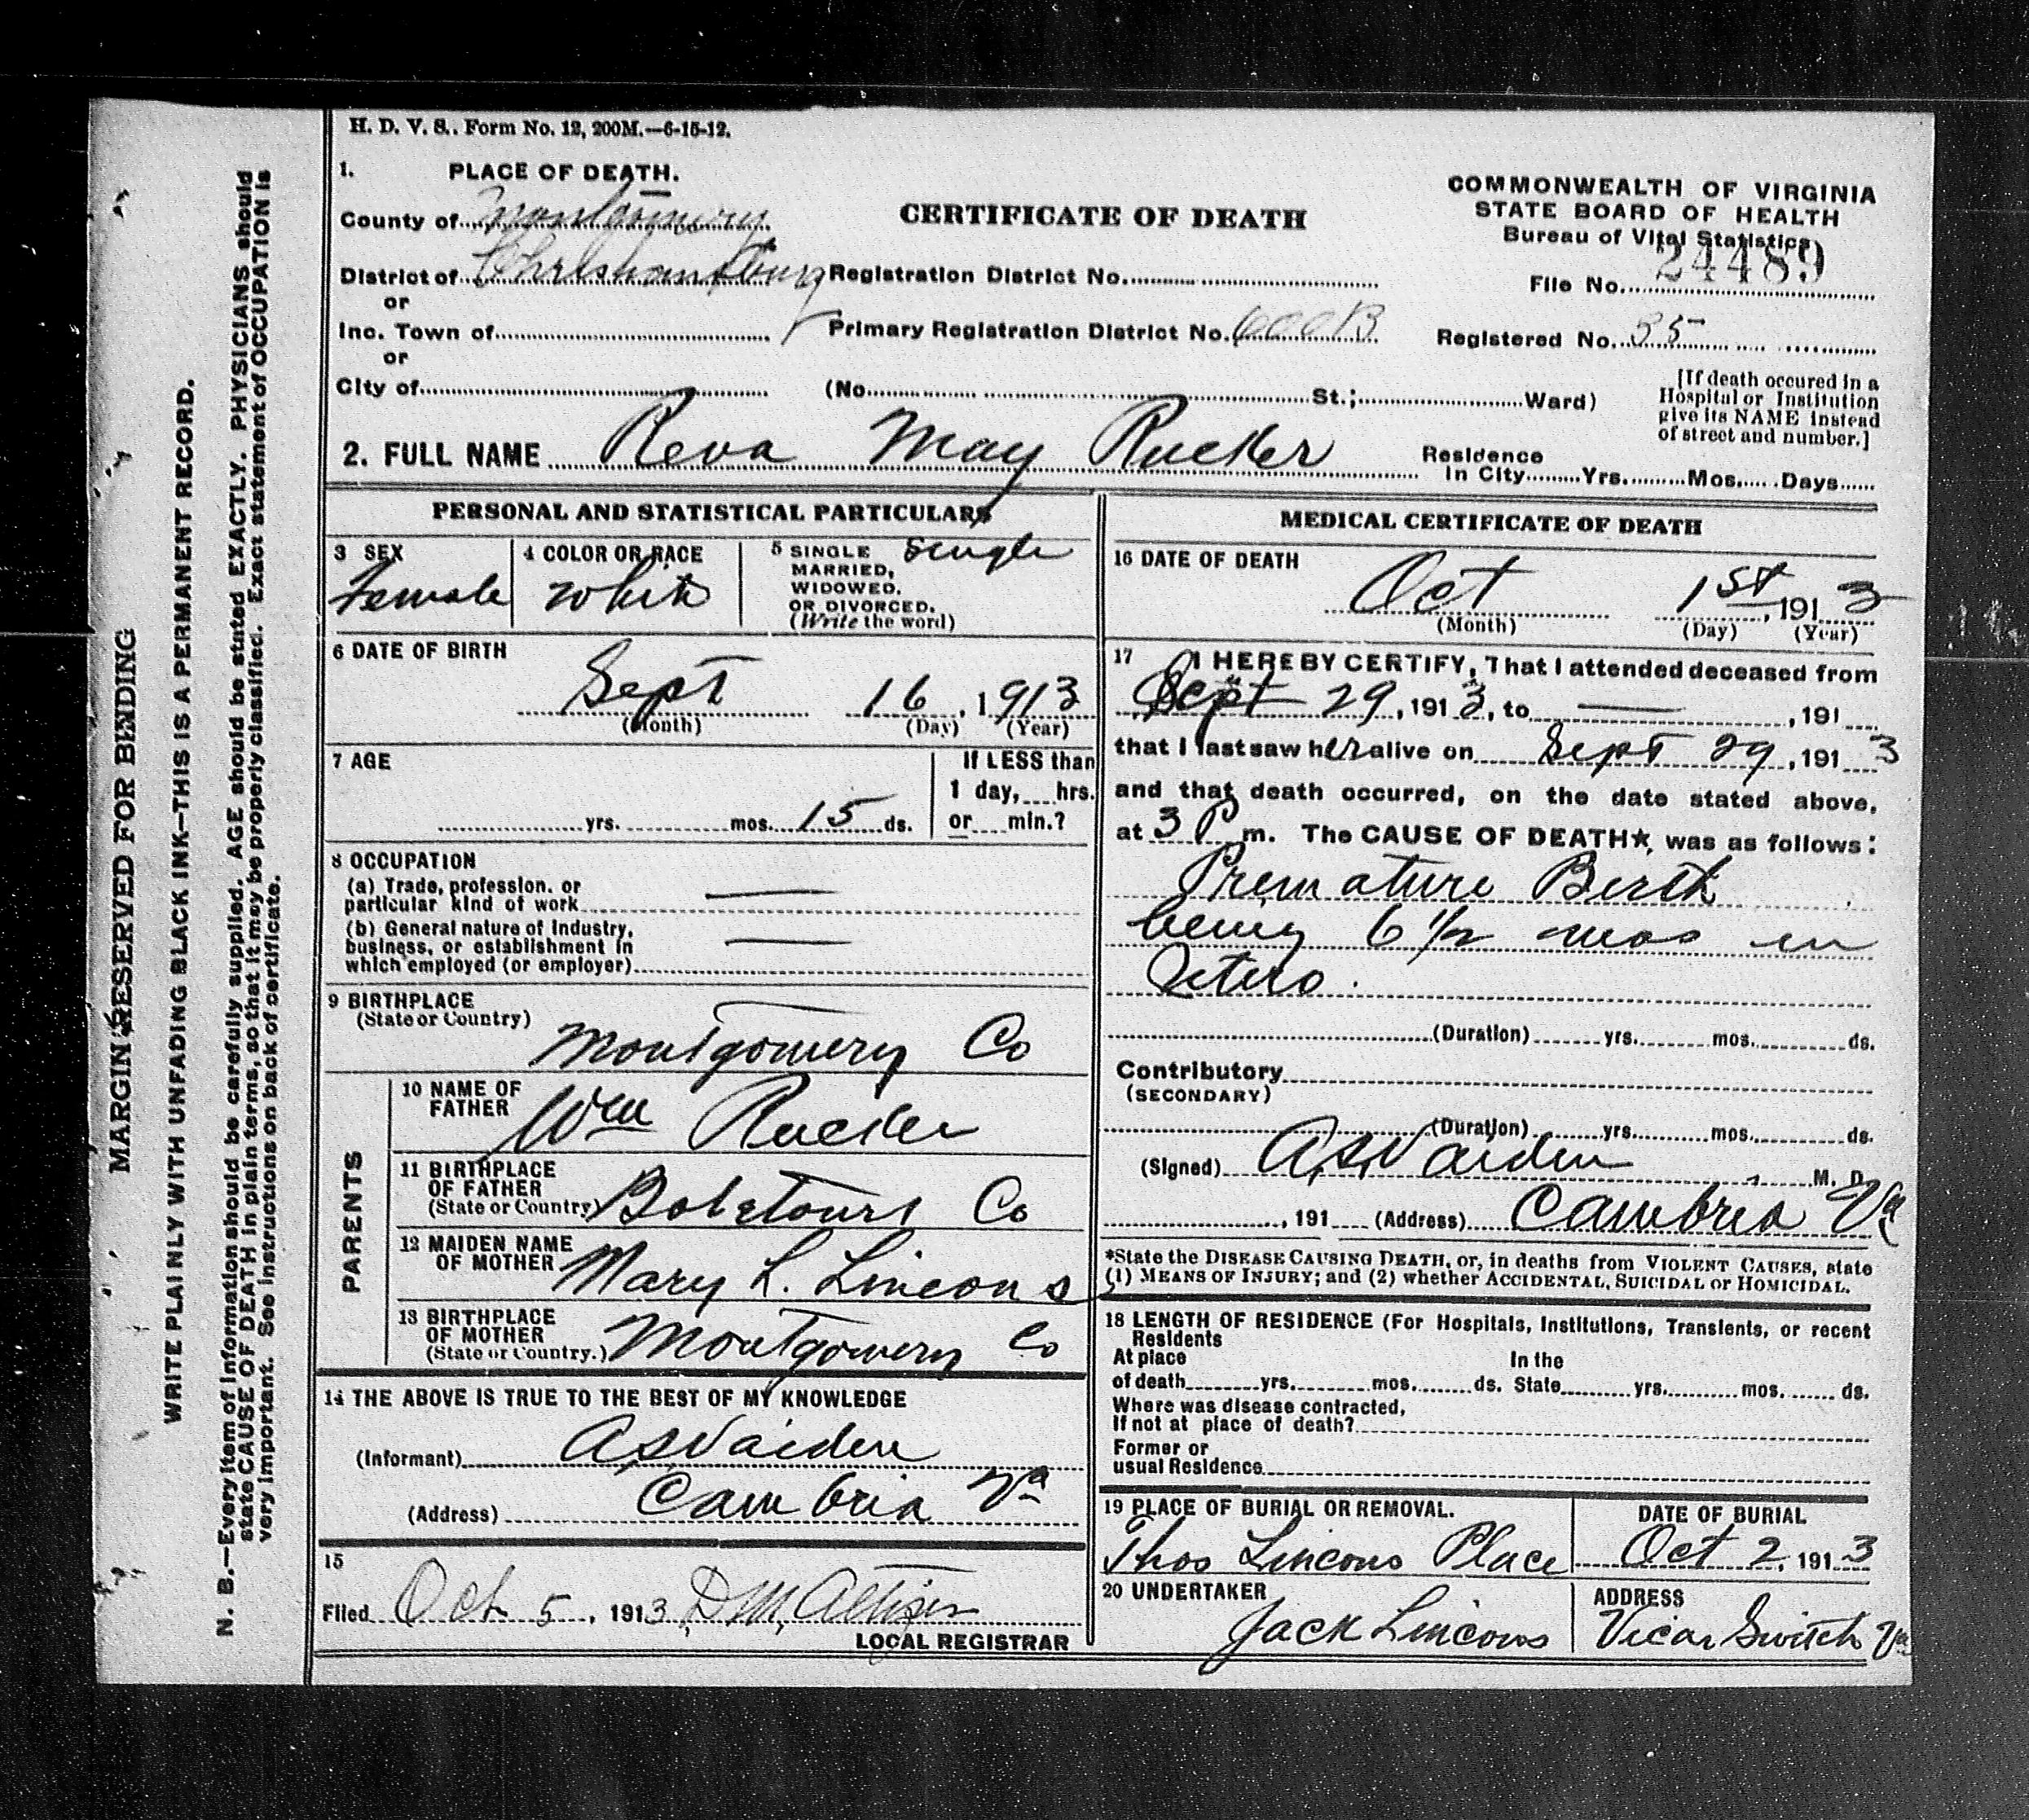 H. D. V. S. Form No. 12, 200M.—6-15-12.
1. PLACE OF DEATH.
County of Montgomery
District of Christiansburg
or
Inc. Town of
or
City of
CERTIFICATE OF DEATH
Registration District No.
Primary Registration District No. 600B
(No. St.; Ward)
COMMONWEALTH OF VIRGINIA
STATE BOARD OF HEALTH
Bureau of Vital Statistics
File No. 24489
Registered No. 35
[If death occured in a
Hospital or Institution
give its NAME instead
of street and number.]
2. FULL NAME Reva May Rucker
Residence
In City Yrs. Mos. Days
PERSONAL AND STATISTICAL PARTICULARS
3 SEX
Female
4 COLOR OR RACE
White
5 SINGLE Single
MARRIED,
WIDOWED.
OR DIVORCED.
(Write the word)
6 DATE OF BIRTH
Sept 16, 1913
(Month) (Day) (Year)
7 AGE
yrs. mos. 15 ds.
If LESS than
1 day, hrs.
or min.?
8 OCCUPATION
(a) Trade, profession. or
particular kind of work —
(b) General nature of Industry,
business, or establishment in —
which employed (or employer)
9 BIRTHPLACE
(State or Country)
Montgomery Co
PARENTS
10 NAME OF
FATHER Wm Rucker
11 BIRTHPLACE
OF FATHER
(State or Country) Botetourt Co
12 MAIDEN NAME
OF MOTHER Mary L. Lincons
13 BIRTHPLACE
OF MOTHER
(State or Country.) Montgomery Co
14 THE ABOVE IS TRUE TO THE BEST OF MY KNOWLEDGE
(Informant) A S Vaiden
(Address) Cambria Va
15
Filed Oct 5, 1913, D.M. Altizer
LOCAL REGISTRAR
MEDICAL CERTIFICATE OF DEATH
16 DATE OF DEATH
Oct 1st, 1913
(Month) (Day) (Year)
17 I HEREBY CERTIFY, That I attended deceased from
Sept 29, 1913, to —, 191
that I last saw her alive on Sept 29, 1913
and that death occurred, on the date stated above,
at 3 P m. The CAUSE OF DEATH★, was as follows:
Premature Birth
being 6 1/2 mos in
Utero.
(Duration) yrs. mos. ds.
Contributory
(SECONDARY)
(Duration) yrs. mos. ds.
(Signed) A.S. Vaiden, M. D.
, 191 (Address) Cambria Va
*State the DISEASE CAUSING DEATH, or, in deaths from VIOLENT CAUSES, state
(1) MEANS OF INJURY; and (2) whether ACCIDENTAL, SUICIDAL or HOMICIDAL.
18 LENGTH OF RESIDENCE (For Hospitals, Institutions, Transients, or recent
Residents
At place In the
of death yrs. mos. ds. State yrs. mos. ds.
Where was disease contracted,
If not at place of death?
Former or
usual Residence
19 PLACE OF BURIAL OR REMOVAL.
Thos Lincons Place
DATE OF BURIAL
Oct 2, 1913
20 UNDERTAKER
Jack Lincons
ADDRESS
Vicar Switch Va
MARGIN RESERVED FOR BINDING
WRITE PLAINLY WITH UNFADING BLACK INK—THIS IS A PERMANENT RECORD.
N. B.—Every item of information should be carefully supplied. AGE should be stated EXACTLY. PHYSICIANS should
state CAUSE OF DEATH in plain terms, so that it may be properly classified. Exact statement of OCCUPATION is
very important. See instructions on back of certificate.